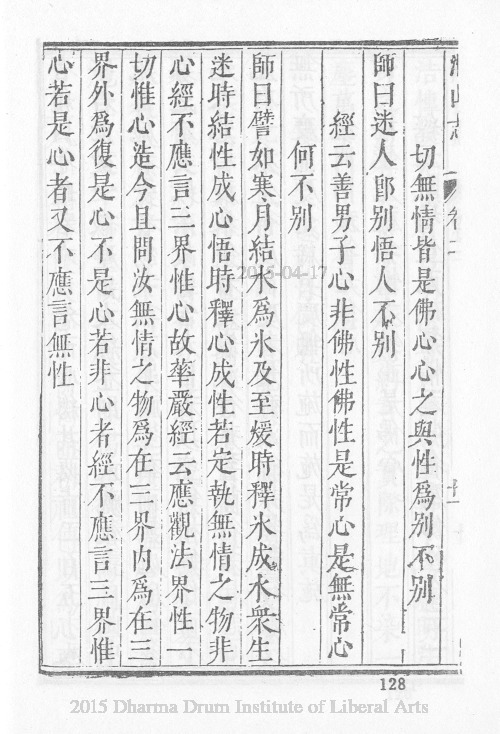 切無情皆是佛心心之與性爲別不別
師曰迷人卽別悟人不別
經云善男子心非佛性佛性是常心是無常心
何不別
師曰譬如寒月結水爲氷及至煖時釋氷成水衆生
迷時結性成心悟時釋心成性若定執無情之物非
心經不應言三界惟心故華嚴經云應觀法界性一
切惟心造今且問汝無情之物爲在三界內爲在三
界外爲復是心不是心若非心者經不應言三界惟
心若是心者又不應言無性
2015-04-17
128
2015 Dharma Drum Institute of Liberal Arts